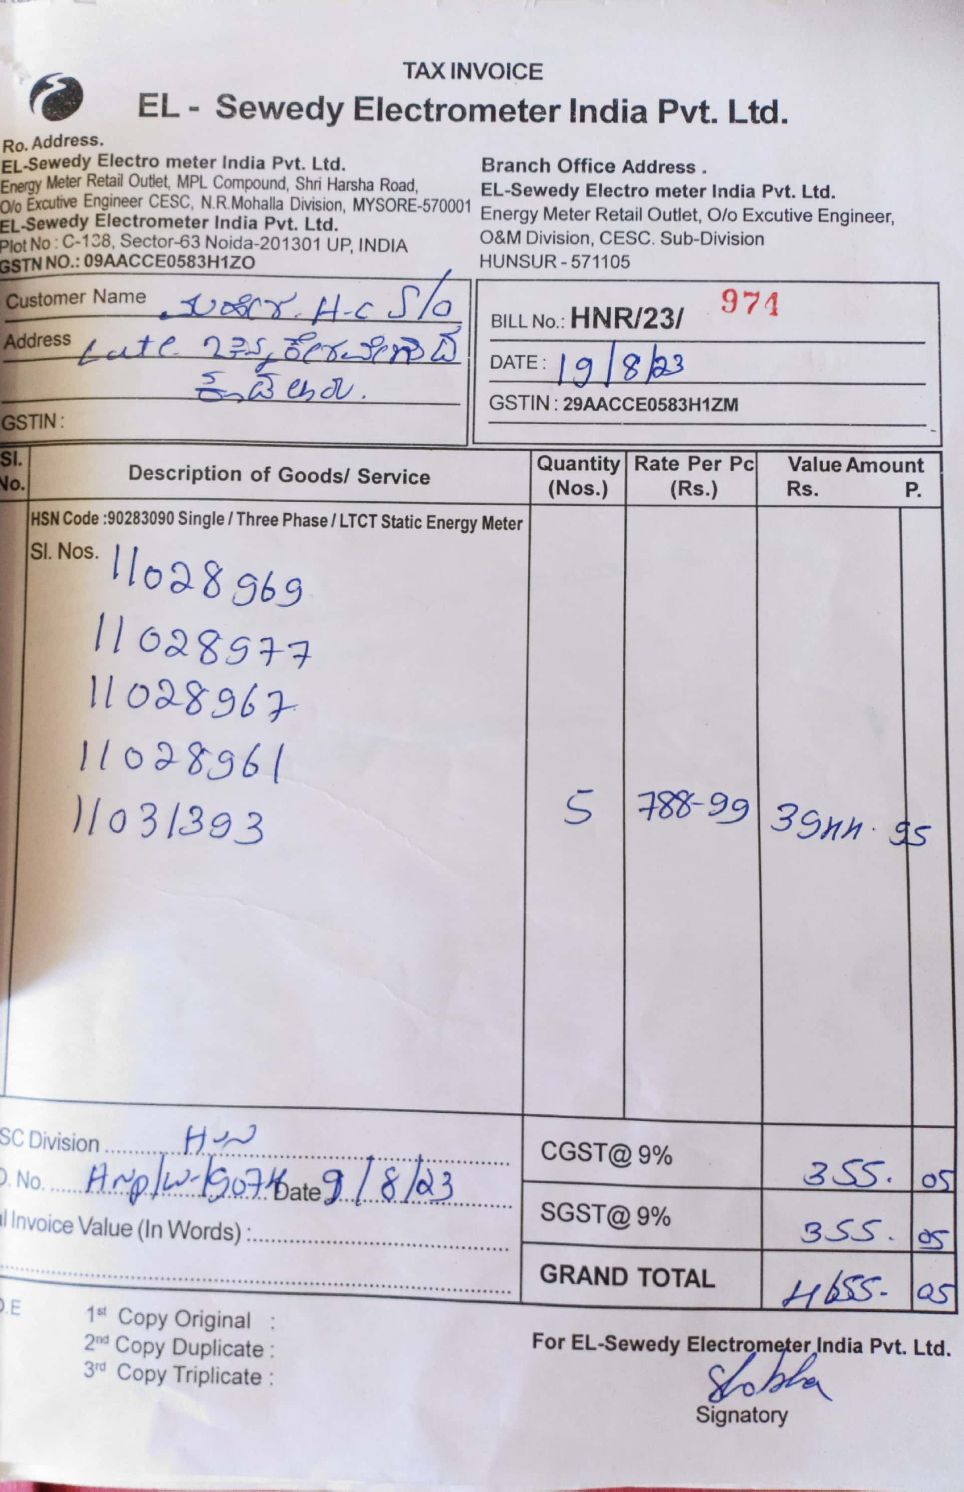 TAX INVOICE
EL - Sewedy Electrometer India Pvt. Ltd.
Ro. Address.
EL-Sewedy Electro meter India Pvt. Ltd.
Energy Meter Retail Outlet, MPL Compound, Shri Harsha Road,
O/o Excutive Engineer CESC, N.R.Mohalla Division, MYSORE-570001
EL-Sewedy Electrometer India Pvt. Ltd.
Plot No : C-138, Sector-63 Noida-201301 UP, INDIA
GSTN NO.: 09AACCE0583H1ZO
Branch Office Address .
EL-Sewedy Electro meter India Pvt. Ltd.
Energy Meter Retail Outlet, O/o Excutive Engineer,
O&M Division, CESC. Sub-Division
HUNSUR - 571105
Customer Name H-C S/o
Address Late.
GSTIN :
BILL No.: HNR/23/ 974
DATE : 19/8/23
GSTIN : 29AACCE0583H1ZM
Sl. No. Description of Goods/ Service Quantity (Nos.) Rate Per Pc (Rs.) Value Amount Rs. P.
HSN Code :90283090 Single / Three Phase / LTCT Static Energy Meter
Sl. Nos. 11028969
11028977
11028967
11028961
11031393 5 788-99 3944. 95
SC Division HUN
CGST@ 9% 355. 05
No. Date 9/8/23
SGST@ 9% 355. 05
l Invoice Value (In Words) :
GRAND TOTAL 4655. 05
O.E
1st Copy Original :
2nd Copy Duplicate :
3rd Copy Triplicate :
For EL-Sewedy Electrometer India Pvt. Ltd.
Shobha
Signatory